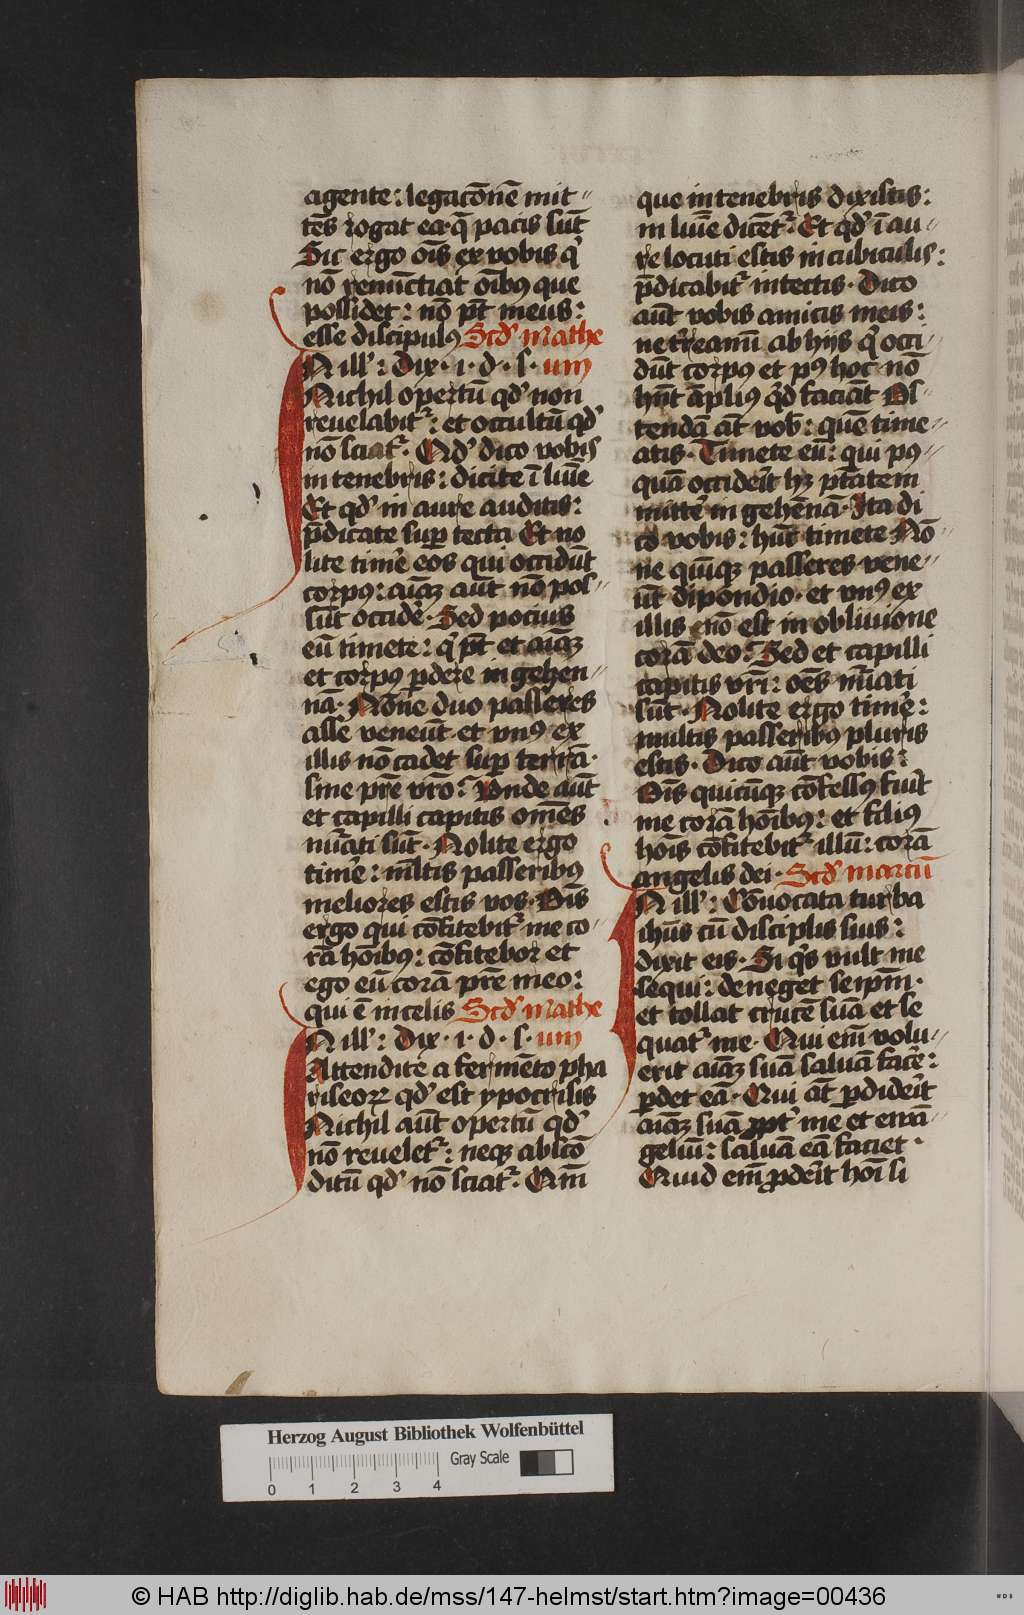 agente: legacōnē mit⸗
tēs rogat ea q̄ pacis sūt
Sic ergo oīs ex vobis qͥ
nō renūctiat oībꝰ que
possidet: nō pt̄ meus:
esse discipulꝰ Scdꝰ mathe
N illꝰ: Dix · i · d · s · um
Nichil opertū qdꝰ non
revelabitᷣ: et occultū qdꝰ
nō sciatᷣ · Qdꝰ dico vobis
in tenebris: dicite ī lūīe
Et qdꝰ in aure auditis:
p̄dicate suꝑ tecta Et no
lite timē eos qui occidūt
corpꝰ: aīaꝫ aūt nō pos⸗
sūt occidē · Sed pocius
eū timete: qͥ pt̄ et aīaꝫ
et corpꝰ ꝑdere in gehen⸗
nā · Nōne duo passeres
asse veneūt et vnꝰ ex
illis nō cadet suꝑ terrā ·
sine p̄re vr̄o: Vnde aūt
et capilli capitis omēs
nūati sūt · Nolite ergo
timē: ml̄tis passeribꝰ
meliores estis vos · Oīs
ergo qui cōfitebitᷣ me co⸗
rā hoībꝰ: cōfitebor et
ego eū corā p̄re meo:
qui ē in celis Scdꝰ mathe
N illꝰ: Dix · i · d · s · um
Attendite a fermēto pha
riseoꝝ qdꝰ est ypocrisis
Nichil aūt opertū qdꝰ
nō reveletᷣ: neqꝫ abscō
ditū qdꝰ nō sciatᷣ · Qm̄
que in tenebris dixistis:
in lūīe dicētᷣ · Et qdꝰ ī au⸗
re locuti estis in cubiculis:
p̄dicabitᷣ in tectis · Dico
aūt vobis amicis meis:
ne t̄reamī ab hijs qͥ occi⸗
dūt corpꝰ et pꝰ hoc nō
hn̄t āpliꝰ qͥd faciāt Os⸗
tendā āt vob̄: quē time⸗
atis · Timete eū: qui pꝰ⸗
quā occidēit hꝫ pt̄atem
mittē in gehēnā · Ita di
co vobis: hūc timete Nō⸗
ne quīqꝫ passeres vene⸗
ūt dipondio · et vnꝰ ex
illis nō est in oblivione
corā deo: Sed et capilli
capitis vr̄i: oēs nūati
sūt · Nolite ergo timē:
multis passeribꝰ pluris
estis · Dico aūt vobis:
Oīs quicūqꝫ cōfessꝰ fuīt
me corā hoībꝰ: et filiꝰ
hoīs cōfitebitᷣ illū: corā
angelis dei · Scdꝰ marcū
N illꝰ: Cōvocata turba
ihūs cū disciplis suis:
dixit eis · Si qͥs vult me
sequi: deneget seipm̄ ·
et tollat crucē suā et se
quatᷣ me · Qui em̄ volu⸗
erit aīaꝫ suā saluā facē:
ꝑdet eā · Qui āt ꝑdidēit
aīaꝫ suā ꝓptᷣ me et ewā⸗
geliū: saluā eā faciet ·
Quid em̄ ꝓdēit hoī si
Herzog August Bibliothek Wolfenbüttel
Gray Scale
0 1 2 3 4
© HAB http://diglib.hab.de/mss/147-helmst/start.htm?image=00436